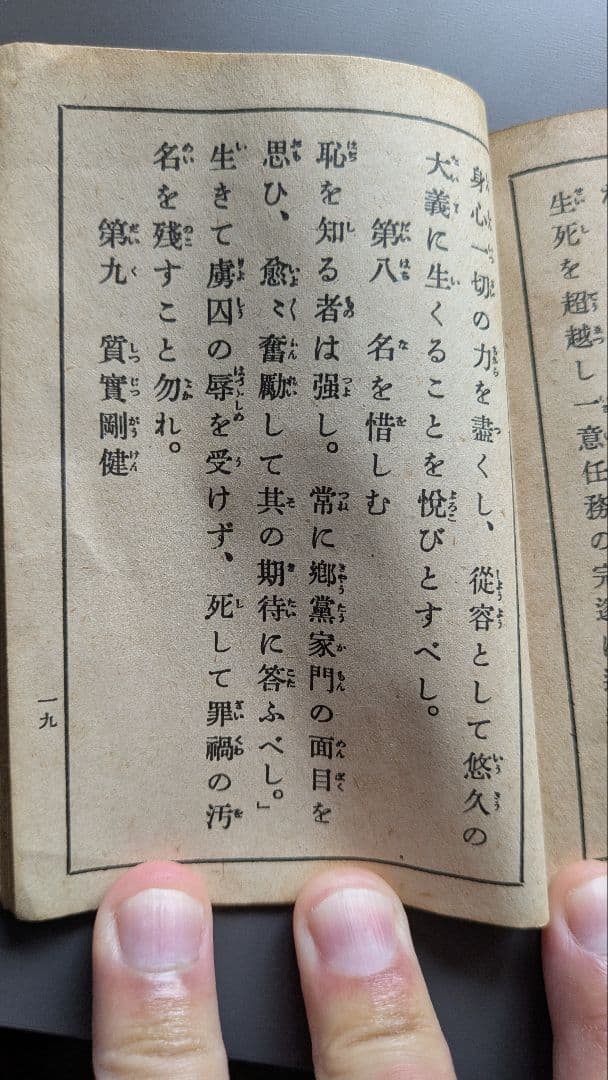 生死を超越し一意任務の完遂に
身心一切の力を盡くし、從容として悠久の
大義に生くることを悅びとすべし。
第八 名を惜しむ
恥を知る者は强し。常に鄕黨家門の面目を
思ひ、愈〻奮勵して其の期待に答ふべし。」
生きて虜囚の辱を受けず、死して罪禍の汚
名を殘すこと勿れ。
第九 質實剛健
一九